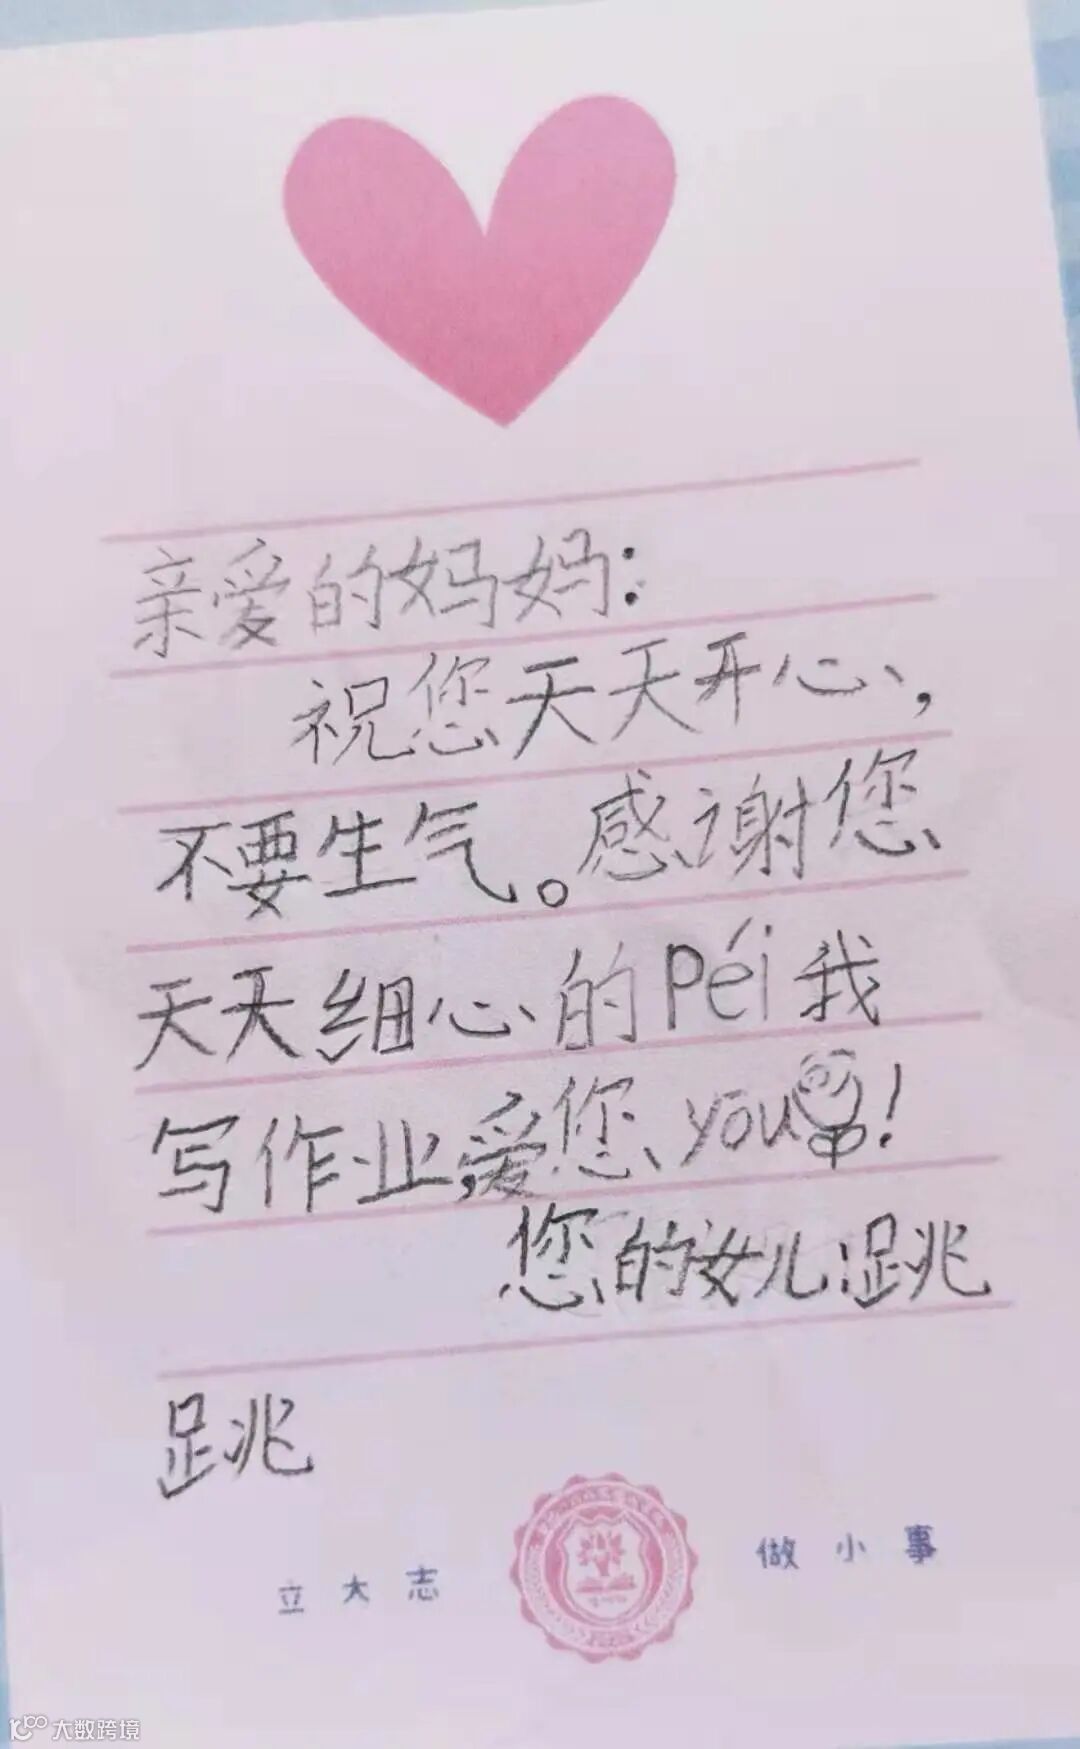 亲爱的妈妈:
祝您天天开心,
不要生气。感谢您
天天细心的péi我
写作业,爱您you!
您的女儿:跳
跳
立大志 做小事
大数跨境